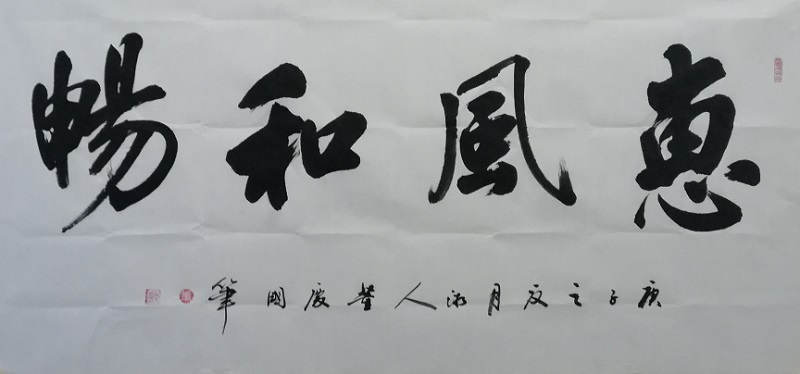 惠風和暢
庚子之夏月湘人董慶國筆